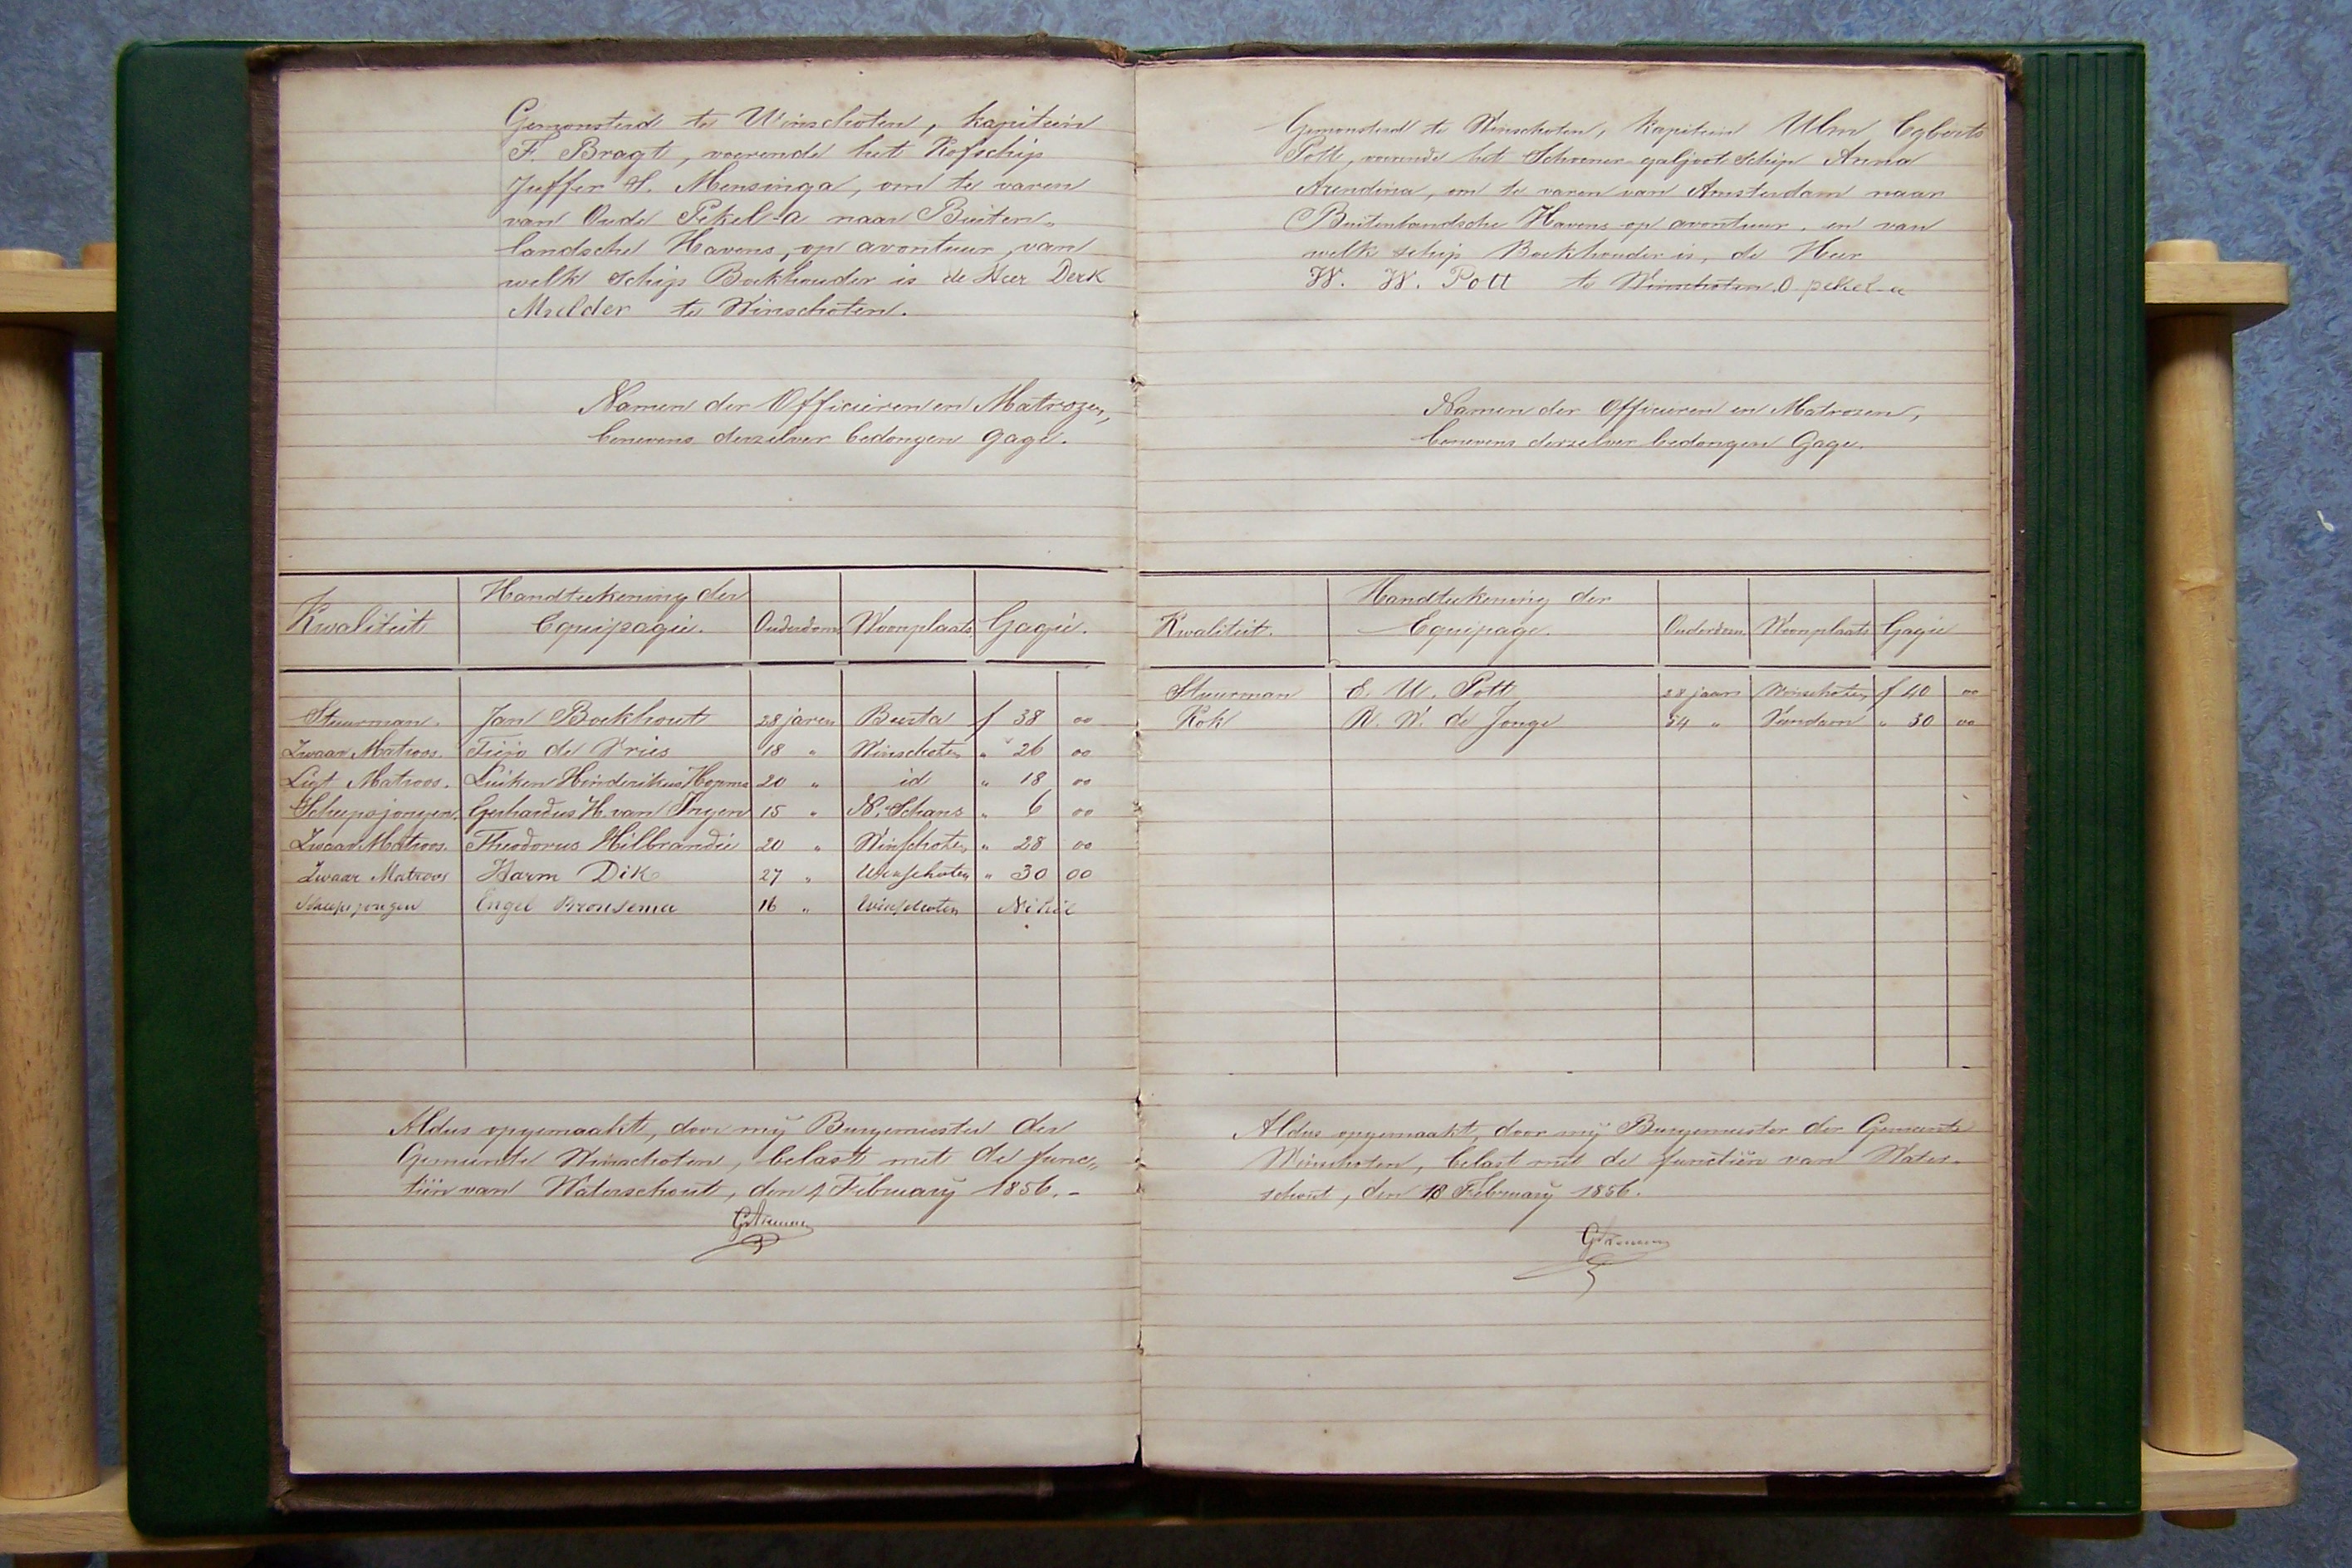 Gemonsterd te Winschoten, kapitein
F. Bragt, voerende het Kofschip
Juffer H. Mensinga, om te varen
van Oude Pekel-a naar Buiten„
landsche Havens, op avontuur, van
welk schip Boekhouder is de Heer Derk
Mulder te Winschoten.
Namen der Officieren en Matrozen,
benevens derzelver bedongen gage.
Kwaliteit Handteekening der Equipagie. Ouderdom Woonplaats Gagie.
Stuurman. Jan Boekhout 28 jaren Beerta f 38 00
Zwaar Matroos. de Vries 18 „ Winschoten „ 26 00
Ligt Matroos. Luiken Hinderikus Hopma 20 „ id „ 18 00
Scheepsjongen. Gerhardus H. van Ingen 15 „ N. Schans „ 6 00
Zwaar Matroos. Theodorus Hilbrandie 20 „ Winschoten „ 28 00
Zwaar Matroos Harm Dik 27 „ Winschoten „ 30 00
Scheepsjongen Engel Bronsema 16 „ Winschoten Nihil
Aldus opgemaakt, door mij Burgemeester der
Gemeente Winschoten, belast met de func„
tiën van Waterschout, den 4 February 1856.-
Gemonsterd te Winschoten, Kapitein Ulm Egberts
Pott, voerende het Schooner-galjoot schip Anna
Arendina, om te varen van Amsterdam naar
Buitenlandsche Havens op avontuur. en van
welk schip Boekhouder is, de Heer
W. W. Pott te Winschoten. O. pekel-a
Namen der Officieren en Matrozen,
benevens derzelver bedongen Gage.
Kwaliteit. Handteekening der Equipage. Ouderdom Woonplaats Gagie
Stuurman E. U. Pott 28 jaar Winschoten f 40 00
Kok R. W. de Jonge 54 „ Veendam „ 30 00
Aldus opgemaakt, door mij Burgemeester der Gemeente
Winschoten, belast met de functiën van Water-
schout, den 18 February 1856.